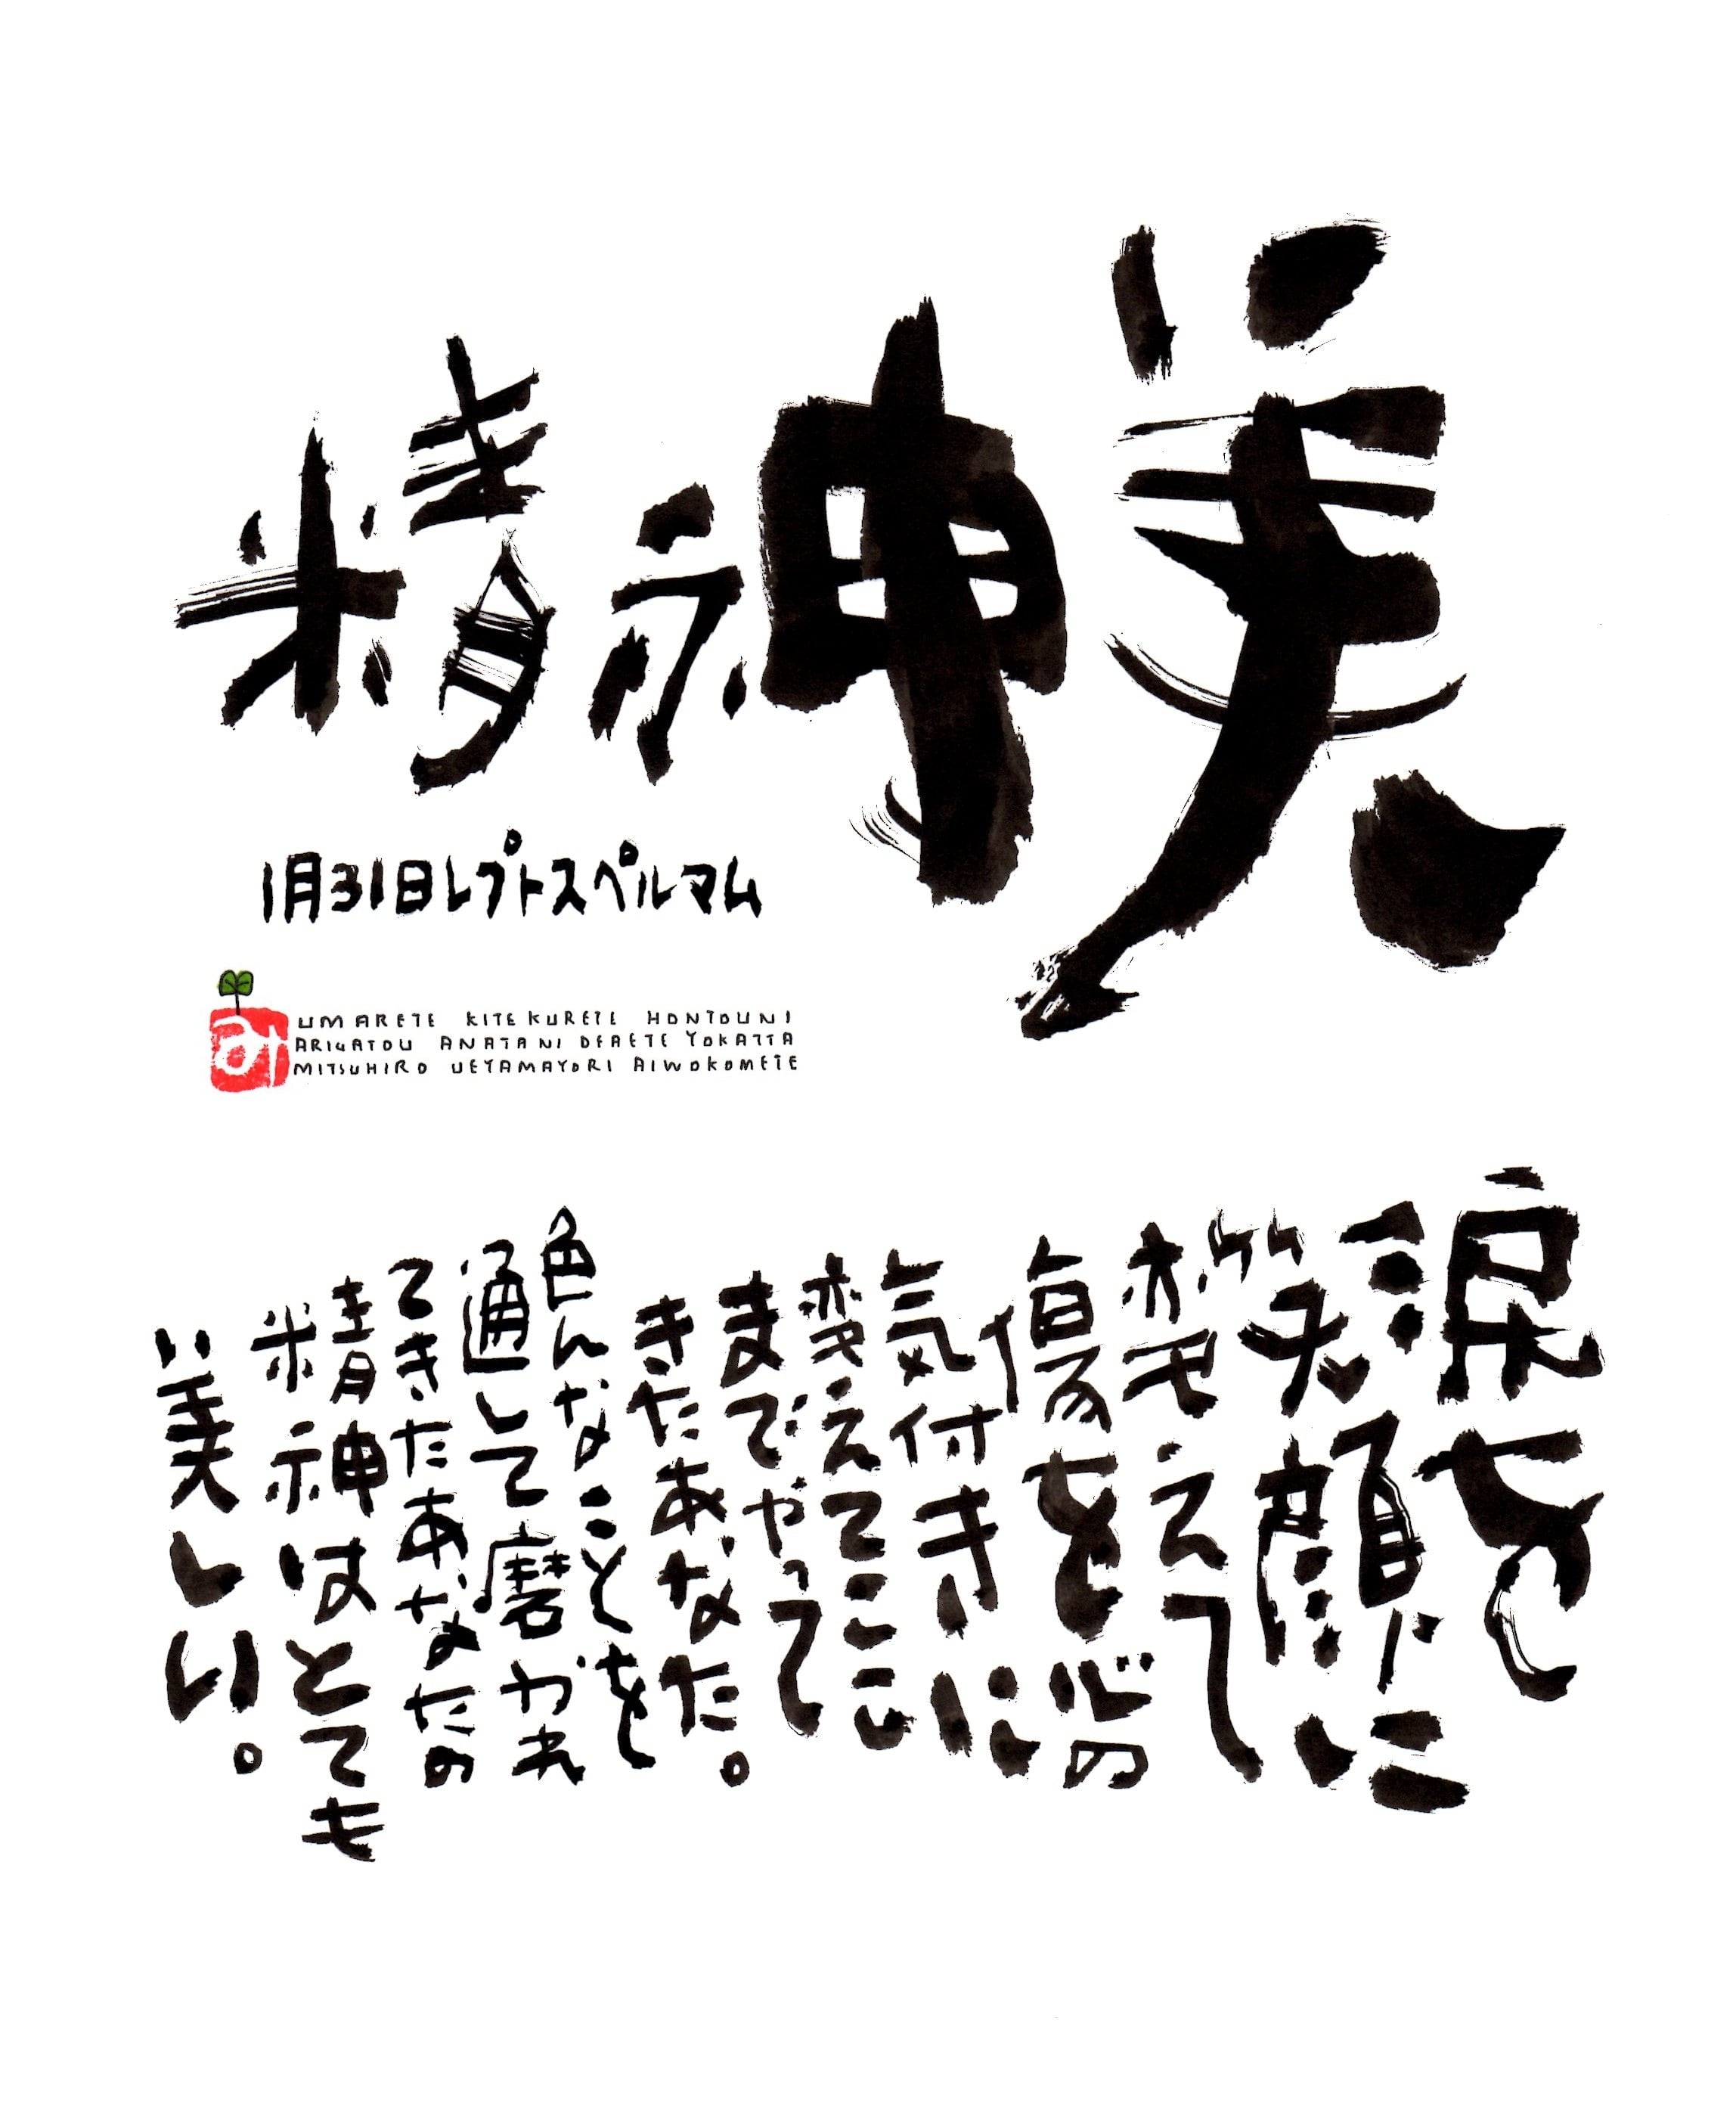 精神美
1月31日レプトスペルマム
み
UMARETE KITE KURETE HONTOUNI
ARIGATOU ANATANI DEAETE YOKATTA
MITSUHIRO UEYAMAYORI AIWOKOMETE
涙を
笑顔に
変えて
傷を心の
気付きに
変えてここ
までやって
きたあなた。
色んなことを
通して磨かれ
てきたあなたの
精神はとても
美しい。